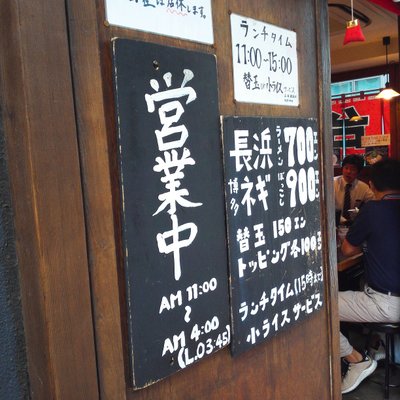 は店休します。
ランチタイム
11:00〜15:00
替玉 or 小ライス サービス
営業中
AM 11:00
〜
AM 4:00
(L.O3:45)
長浜ラーメン 700エン
博多ネギ 900エン
替玉 150エン
トッピング各100エン
ランチタイム(15時まで)
小ライスサービス